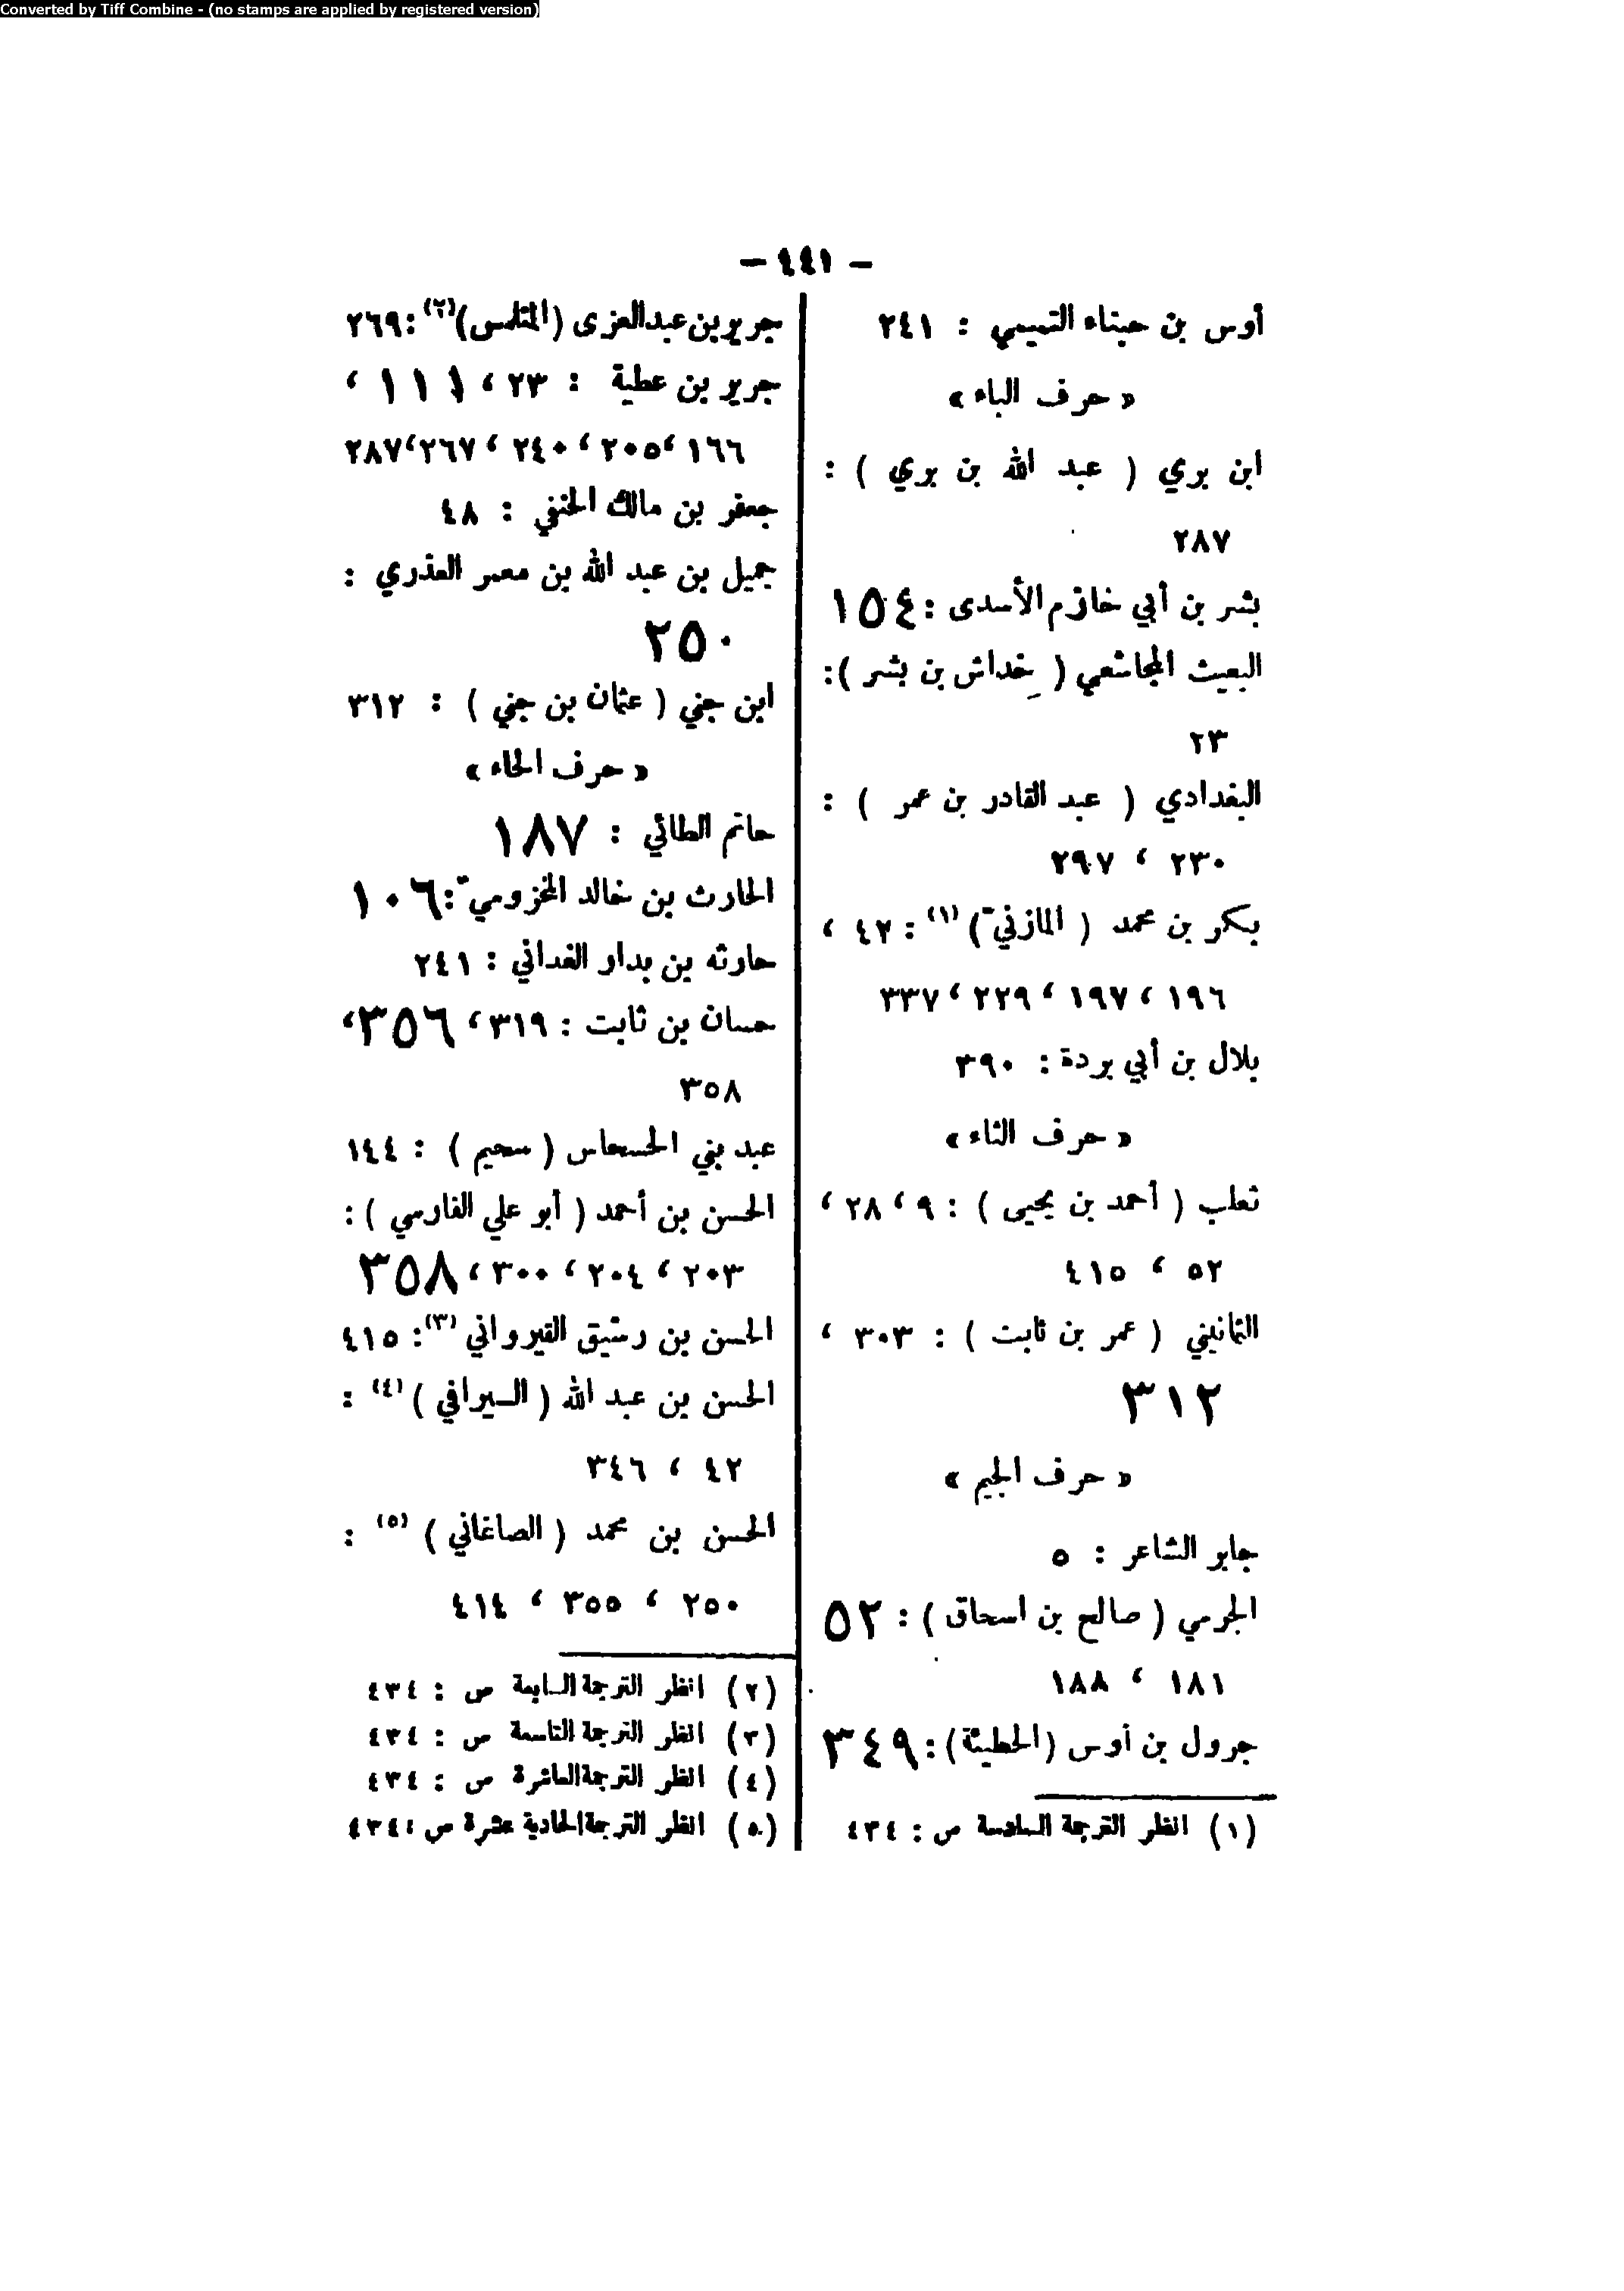 Converted by Tiff Combine - (no stamps are applied by registered version)
- ٤٤١ -
أوس بن حبناء التميمي : ٢٤١
« حرف الباء »
ابن بري ( عبد الله بن بري ) :
٢٨٧
بشر بن أبي خازم الأسدى : ١٥٤
البعيث المجاشعي ( خِداش بن بشر ) :
٢٣
البغدادي ( عبد القادر بن عمر ) :
٢٣٠ ، ٢٩٧
بكر بن محمد ( المازنيّ ) (١) : ٤٢ ،
١٩٦ ، ١٩٧ ، ٢٢٩ ، ٣٣٧
بلال بن أبي بردة : ٣٩٠
« حرف الثاء »
ثعلب ( أحمد بن يحيى ) : ٩ ، ٢٨ ،
٥٢ ، ٤١٥
الثمانيني ( عمر بن ثابت ) : ٣٠٣ ،
٣١٢
« حرف الجيم »
جابر الشاعر : ٥
الجرمي ( صالح بن اسحاق ) : ٥٢
١٨١ ، ١٨٨
جرول بن أوس (الحطيئة) : ٣٤٩
(١) انظر الترجمة السادسة ص : ٤٣٤
جرير بن عبد العزى (المتلمس) (٢) : ٢٦٩
جرير بن عطية : ٢٣ ، ١١١ ،
١٦٦ ، ٢٠٥ ، ٢٤٠ ، ٢٦٧ ، ٢٨٧
جعفر بن مالك الحنفي : ٤٨
جميل بن عبد الله بن معمر العذري :
٢٥٠
ابن جني ( عثمان بن جني ) : ٣١٢
« حرف الحاء »
حاتم الطائي : ١٨٧
الحارث بن خالد المخزوميّ : ١٠٦
حارثه بن بدار الغداني : ٢٤١
حسان بن ثابت : ٣١٩ ، ٣٥٦ ،
٣٥٨
عبد بني الحسحاس ( سحيم ) : ١٤٤
الحسن بن أحمد ( أبو علي الفارسي ) :
٢٠٣ ، ٢٠٤ ، ٣٠٠ ، ٣٥٨
الحسن بن رشيق القيرواني (٣) : ٤١٥
الحسن بن عبد الله ( السيرافي ) (٤) :
٤٢ ، ٣٤٦
الحسن بن محمد ( الصاغاني ) (٥) :
٢٥٠ ، ٣٥٥ ، ٤١٤
(٢) انظر الترجمة السابعة ص : ٤٣٤
(٣) انظر الترجمة التاسعة ص : ٤٣٤
(٤) انظر الترجمة العاشرة ص : ٤٣٤
(٥) انظر الترجمة الحادية عشرة ص : ٤٣٤